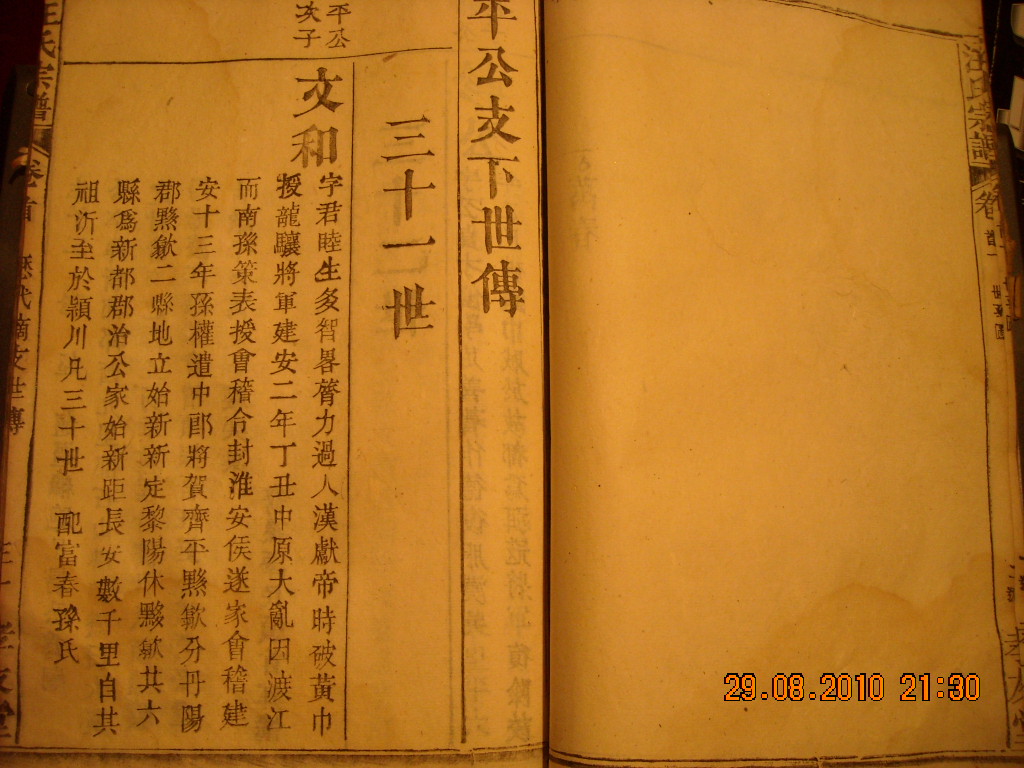 汪氏宗譜 卷
平公支下世傳
三十一世
平公
次子
文和
字君睦生多智畧膂力過人漢獻帝時破黃巾
授龍驤將軍建安二年丁丑中原大亂因渡江
而南孫策表授會稽令封淮安侯遂家會稽建
安十三年孫權遣中郎將賀齊平黟歙分丹陽
郡黟歙二縣地立始新新定黎陽休黟歙共六
縣爲新都郡治公家始新距長安數千里自共
祖沂至於頴川凡三十世 配富春孫氏
汪氏宗譜 卷首 歷代 支世傳
29.08.2010 21:30